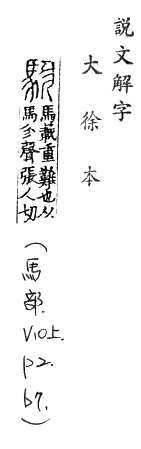 說文解字
大徐本
馬載重難也从
馬㐱聲張人切
(馬部.V10上.P2.b7.)